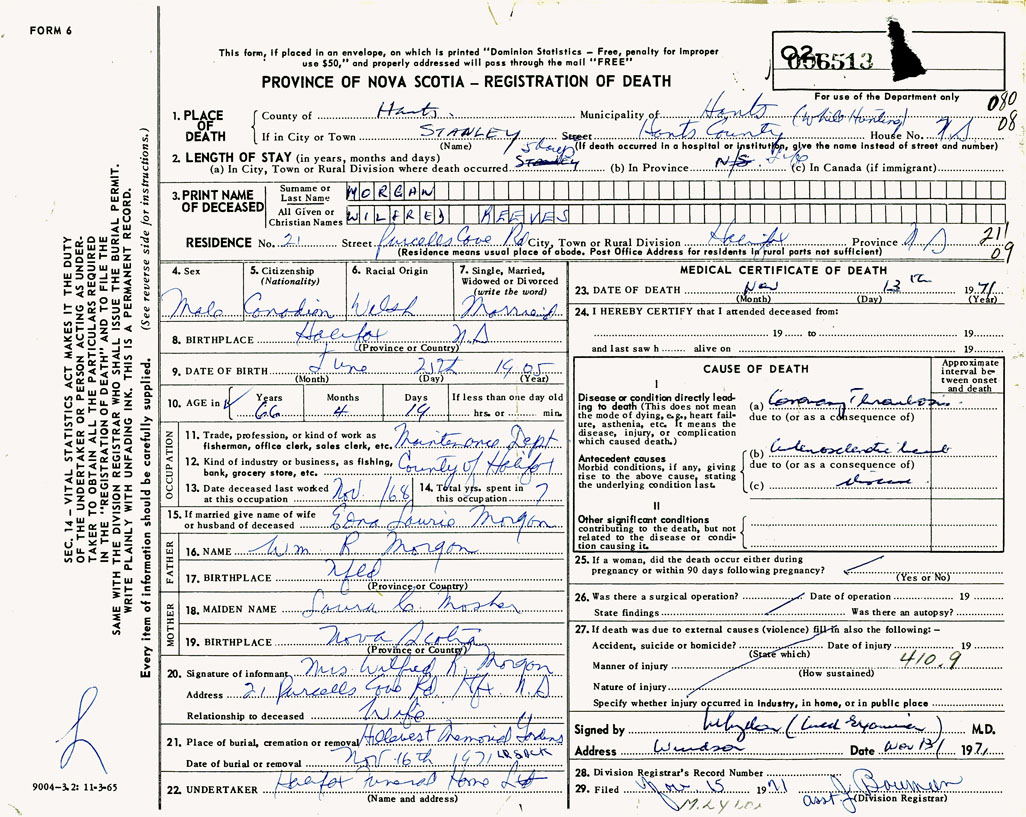 FORM 6
This form, if placed in an envelope, on which is printed "Dominion Statistics – Free, penalty for improper
use $50," and properly addressed will pass through the mail "FREE"
PROVINCE OF NOVA SCOTIA – REGISTRATION OF DEATH
056513
For use of the Department only
080
08
1. PLACE OF DEATH
County of Hants. Municipality of Hants (While Hunting)
If in City or Town STANLEY Street Hants County House No. N S
(Name) (If death occurred in a hospital or institution, give the name instead of street and number)
2. LENGTH OF STAY (in years, months and days)
(a) In City, Town or Rural Division where death occurred 5 days STANLEY (b) In Province N/S. Life (c) In Canada (if immigrant)
3. PRINT NAME OF DECEASED
Surname or Last Name MORGAN
All Given or Christian Names WILFRED REEVES
RESIDENCE No. 21 Street Purcells Cove Rd City, Town or Rural Division Halifax Province N S
211
09
(Residence means usual place of abode. Post Office Address for residents in rural parts not sufficient)
4. Sex Male
5. Citizenship (Nationality) Canadian
6. Racial Origin Welsh
7. Single, Married, Widowed or Divorced (write the word) Married
8. BIRTHPLACE Halifax N.S
(Province or Country)
9. DATE OF BIRTH June 25th 1905
(Month) (Day) (Year)
10. AGE in Years 66 Months 4 Days 19 If less than one day old hrs. or min.
OCCUPATION
11. Trade, profession, or kind of work as fisherman, office clerk, sales clerk, etc. Maintenance Dept
12. Kind of industry or business, as fishing, bank, grocery store, etc. County of Halifax
13. Date deceased last worked at this occupation Nov. /68
14. Total yrs. spent in this occupation 7
15. If married give name of wife or husband of deceased Edna Laurie Morgan
FATHER
16. NAME Wm R Morgan
17. BIRTHPLACE Nfld
(Province or Country)
MOTHER
18. MAIDEN NAME Laura C. Mosher
19. BIRTHPLACE Nova Scotia
(Province or Country)
20. Signature of informant Mrs. Wilfred R. Morgan
Address 21 Purcells Cove Rd Hfx N.S
Relationship to deceased Wife
21. Place of burial, cremation or removal Hillcrest Memorial Gardens
Date of burial or removal Nov 16th 1971
22. UNDERTAKER Halifax Funeral Home Ltd
(Name and address)
MEDICAL CERTIFICATE OF DEATH
23. DATE OF DEATH Nov 13th 1971
(Month) (Day) (Year)
24. I HEREBY CERTIFY that I attended deceased from:
19 to 19
and last saw h alive on 19
CAUSE OF DEATH
Approximate interval between onset and death
I
Disease or condition directly leading to death (This does not mean the mode of dying, e.g., heart failure, asthenia, etc. It means the disease, injury, or complication which caused death.)
(a) Coronary Thrombosis
due to (or as a consequence of)
Antecedent causes
Morbid conditions, if any, giving rise to the above cause, stating the underlying condition last.
(b) arteriosclerotic heart
due to (or as a consequence of)
(c) disease
II
Other significant conditions contributing to the death, but not related to the disease or condition causing it.
25. If a woman, did the death occur either during
pregnancy or within 90 days following pregnancy?
(Yes or No)
26. Was there a surgical operation? Date of operation 19
State findings Was there an autopsy?
27. If death was due to external causes (violence) fill in also the following:–
Accident, suicide or homicide? Date of injury 19
(State which)
410.9
Manner of injury
(How sustained)
Nature of injury
Specify whether injury occurred in Industry, in home, or in public place
Signed by (Med Examiner) M.D.
Address Windsor Date Nov 13/ 1971
28. Division Registrar's Record Number
29. Filed Nov. 15 1971 asst J Bowman
(Division Registrar)
SEC. 14 – VITAL STATISTICS ACT MAKES IT THE DUTY
OF THE UNDERTAKER OR PERSON ACTING AS UNDER-
TAKER TO OBTAIN ALL THE PARTICULARS REQUIRED
IN THE "REGISTRATION OF DEATH" AND TO FILE THE
SAME WITH THE DIVISION REGISTRAR WHO SHALL ISSUE THE BURIAL PERMIT.
WRITE PLAINLY WITH UNFADING INK. THIS IS A PERMANENT RECORD.
Every item of information should be carefully supplied. (See reverse side for instructions.)
9004–3.2: 11-3-65